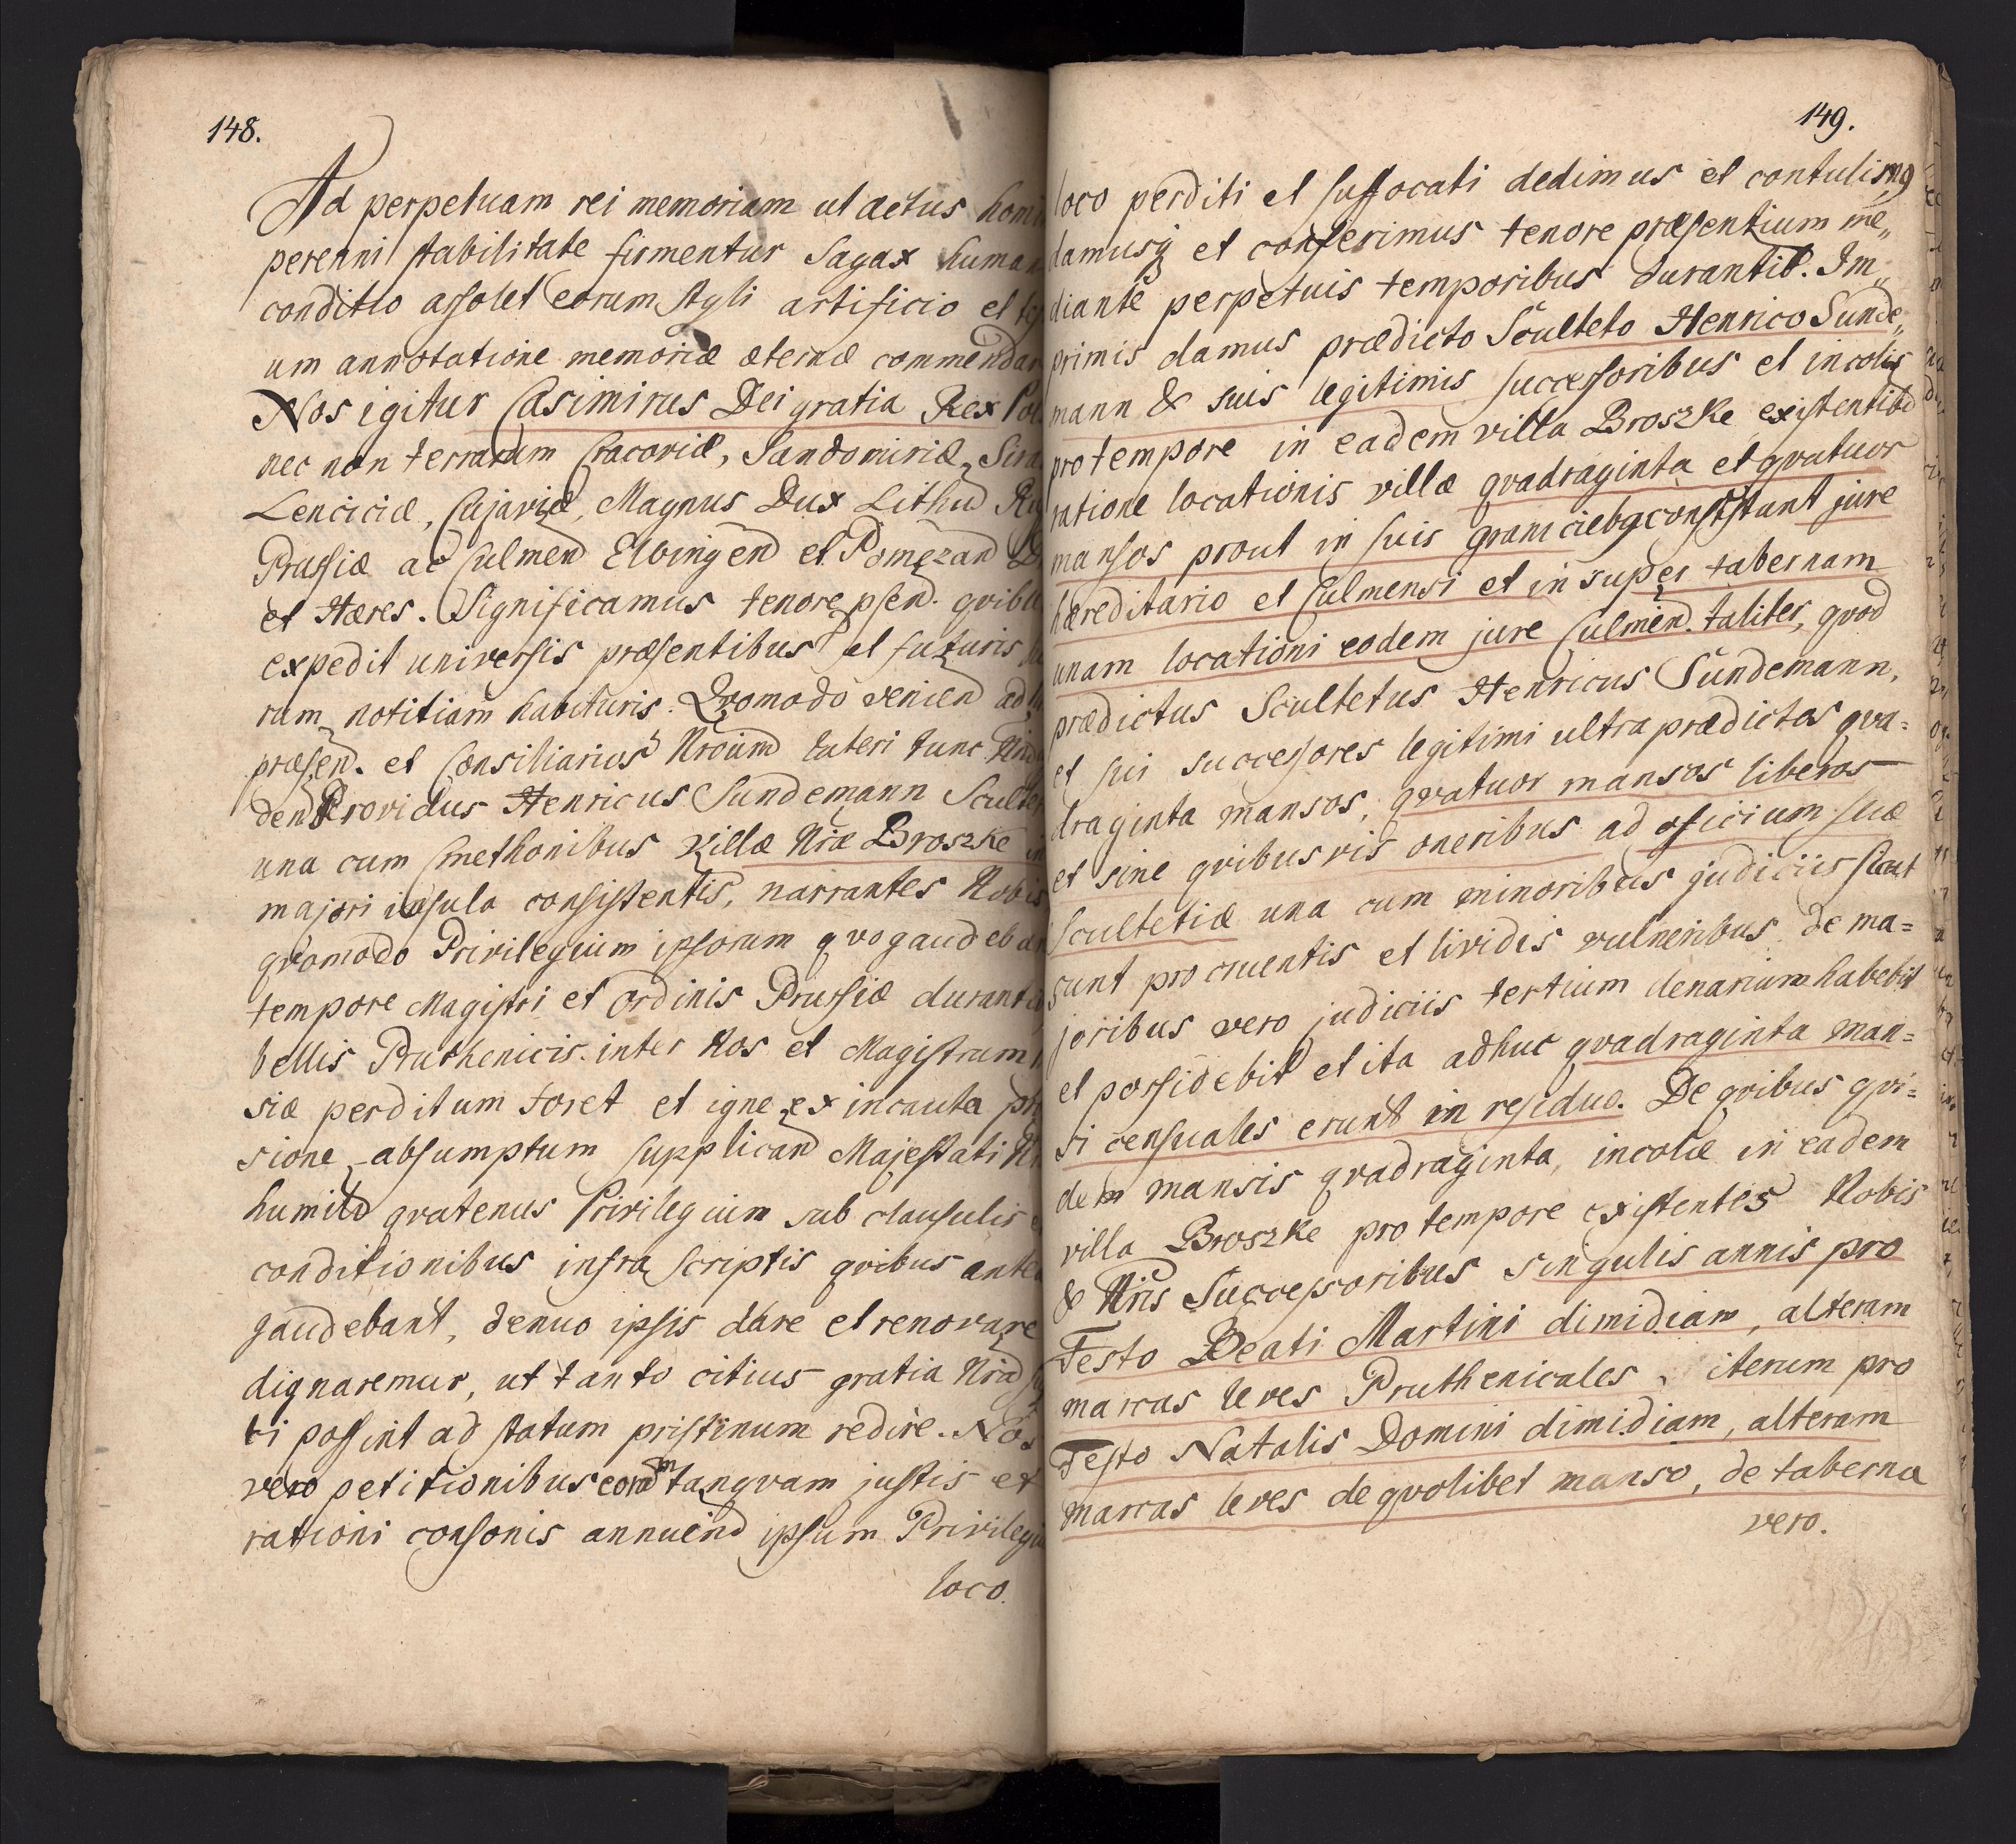 148.
Ad perpetuam rei memoriam ut actus homi
perenni stabilitate firmentur sagax human
conditio assolet eorum styli artificio et
um annotatione memoriæ æternæ commendar
Nos igitur Casimirus Dei gratia Rex Pol
nec non terrarum Cracoviæ, Sandomiriæ, Sira
Lenciciæ, Cujaviæ, Magnus Dux Lithud
Prussiæ ac Culmend Elbingend et Pomezand
et Hæres. Significamus tenore psend. qvibu
expedit universis præsentibus et futuris
rum notitiam habituris. Qvomodo veniend ad
præsend. et Consiliarios Nroumd lateri tunc
dend Providus Henricus Sundemann Sculte
una cum Cmethonibus Villæ Nræ Broszke in
majori insula consistentis, narrantes Nobis
qvomodo Privilegium ipsorum qvo gaudeba
tempore Magistri et Ordinis Prussiæ durant
bellis Pruthenicis inter Nos et Magistrum
siæ perditum foret et igne ex incauta
sione absumptum supplicand Majestati
humild qvatenus Privilegium sub clausulis
conditionibus infra scriptis qvibus ante
gaudebant, denuo ipsis dare et renovare
dignaremur, ut tanto citius gratia Nra
ti possint ad statum pristinum redire. Nos
vero petitionibus eordm tanqvam justis et
rationi consonis annuend ipsum Privilegiu
loco.
149.
loco perditi et suffocati dedimus et contulimg
damusq et conferimus tenore præsentium me„
diante perpetuis temporibus durantib. Im„
primis damus prædicto Sculteto Henrico Sunde„
mann & suis legitimis successoribus et incolis
pro tempore in eadem villa Broszke existentib
ratione locationis villæ qvadraginta et qvatuor
mansos prout in suis graniciebg consistunt jure
hæreditario et Culmensi et in super tabernam
unam locationi eodem jure Culmend. taliter, qvod
prædictus Scultetus Henricus Sundemann,
et sui successores legitimi ultra prædictos qva=
draginta mansos, qvatuor mansos liberos
et sine qvibusvis oneribus ad officium suæ
Scultetiæ una cum minoribus judiciis sicut
sunt pro cruentis et lividis vulneribus de ma=
joribus vero judiciis tertium denarium habebit
et possidebit et ita adhuc qvadraginta man=
si censuales erunt in residuo. De qvibus qvi=
dem mansis qvadraginta, incolæ in eadem
villa Broszke pro tempore existentes Nobis
& Nris Successoribus singulis annis pro
Festo Beati Martini dimidiam, alteram
marcas leves Pruthenicales, iterum pro
Festo Natalis Domini dimidiam, alteram
marcas leves de qvolibet manso, de taberna
vero.